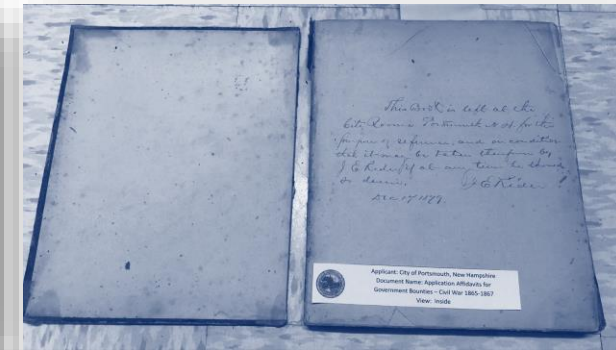 This Book is left at the
City Rooms Portsmouth N.H. for the
purpose of reference, and on condition
that it may be taken therefrom by
J E Rider, if at any time he should
so desire. J E Rider
Dec 17 1879.
Applicant: City of Portsmouth, New Hampshire
Document Name: Application Affidavits for
Government Bounties – Civil War 1865-1867
View: Inside